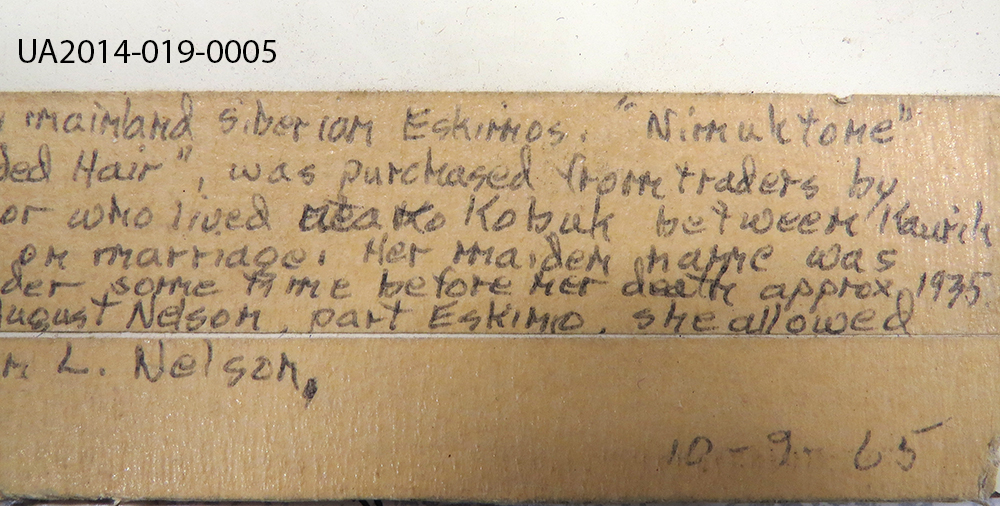 UA2014-019-0005
mainland Siberian Eskimos. "Nimuktome"
ded Hair", was purchased from traders by
or who lived Kobuk between
on marriage. Her maiden name was
der some time before her death approx. 1935
August Nelson, part Eskimo, she allowed
n L. Nelson,
10-9-65